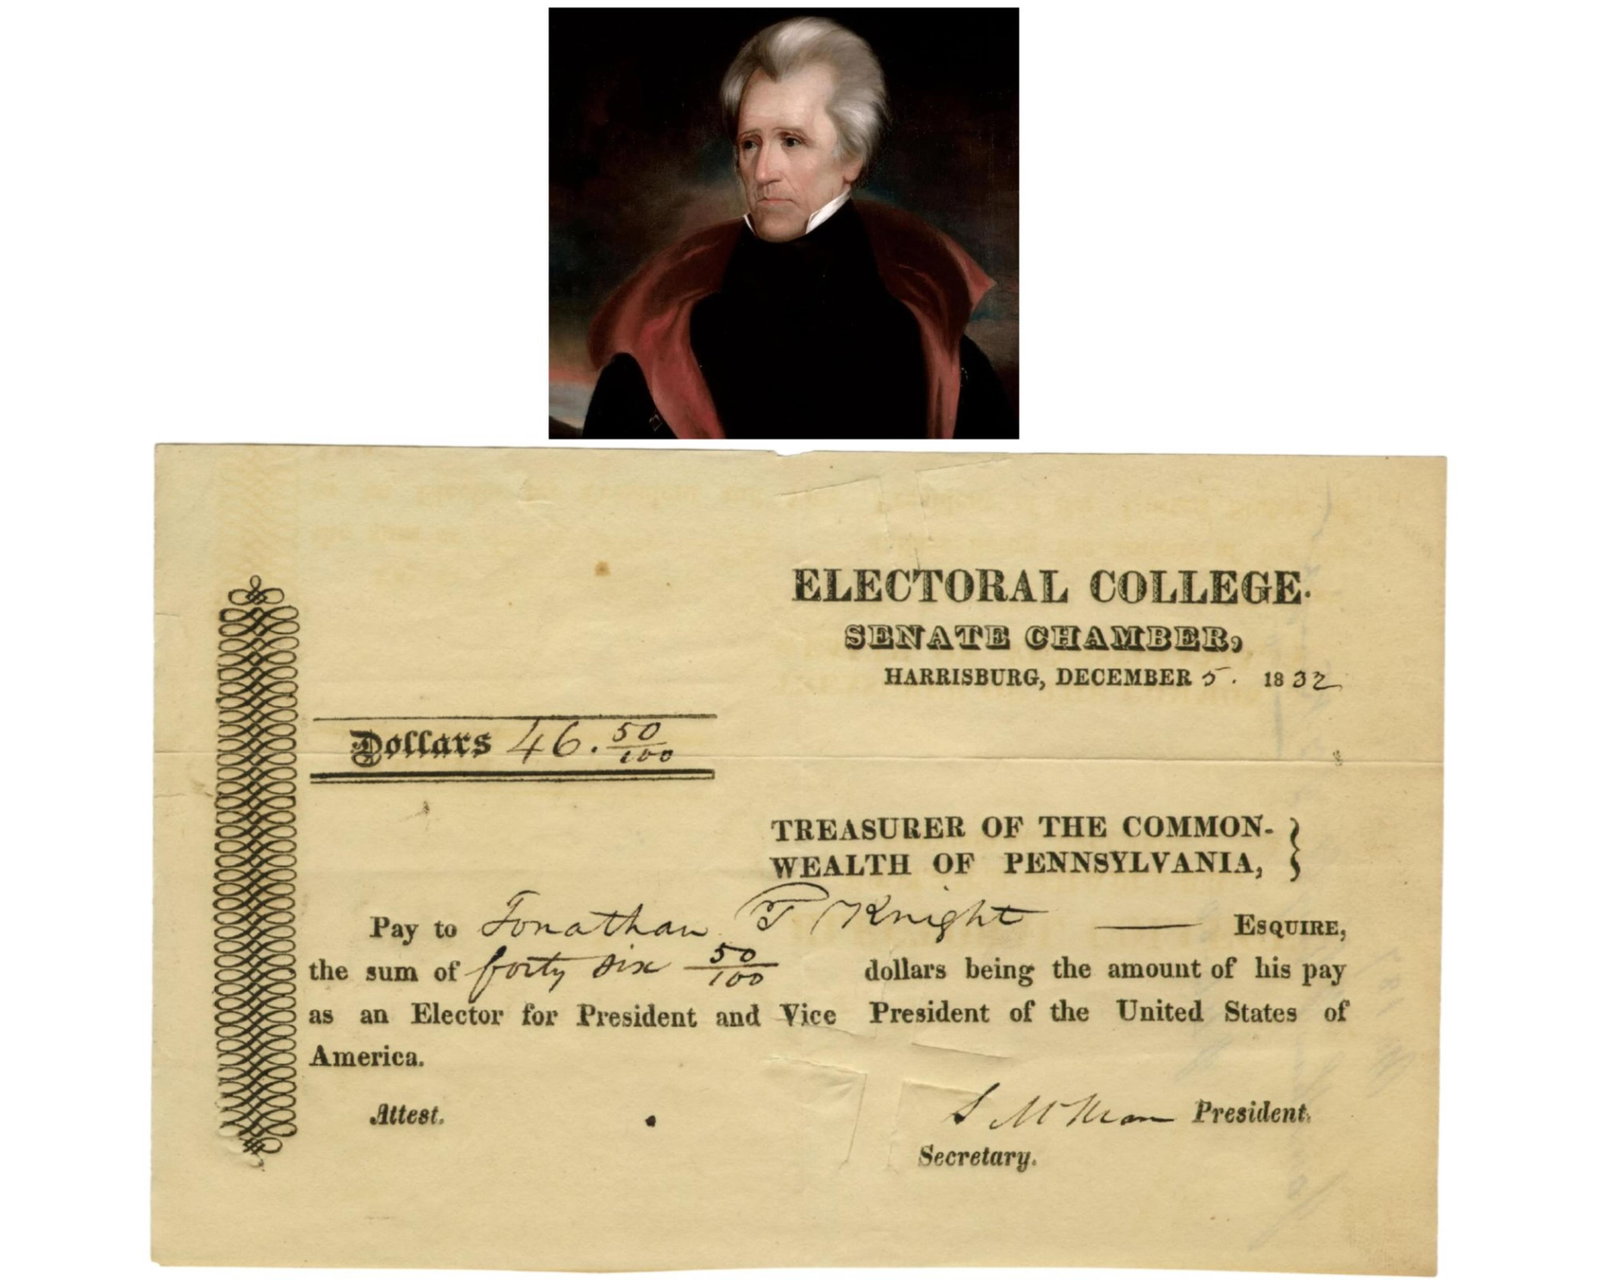 ELECTORAL COLLEGE.
SENATE CHAMBER,
HARRISBURG, DECEMBER 5. 1832
Dollars 46. 50/100
TREASURER OF THE COMMON-
WEALTH OF PENNSYLVANIA, }
Pay to Jonathan T Knight —— ESQUIRE,
the sum of forty six 50/100 dollars being the amount of his pay
as an Elector for President and Vice President of the United States of
America.
Attest. S McKean President.
Secretary.